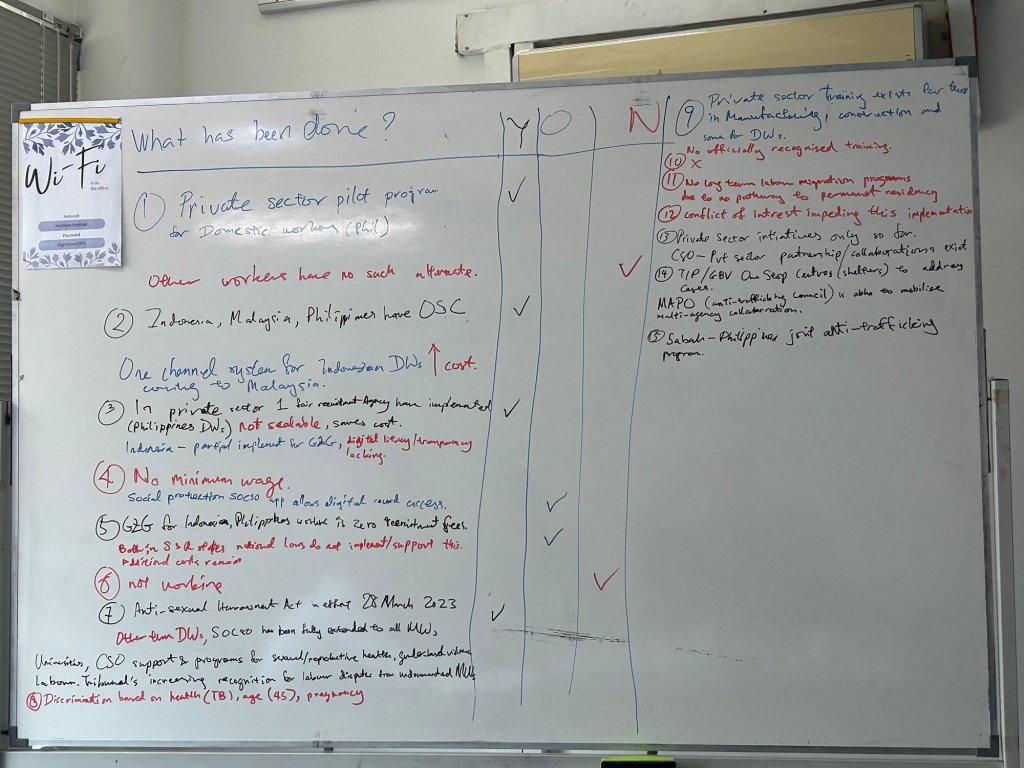 Wi-Fi
in the
the office
Network
Password
What has been done?
Y
O
N
① Private sector pilot program
for Domestic workers (Phil)
Other workers have no such alternate.
② Indonesia, Malaysia, Philippines have OSC
One channel system for Indonesian DWs ↑ cost.
coming to Malaysia.
③ In private sector 1 fair recruitment Agency have implemented
(Philippines DWs) not scalable, saves cost.
Indonesia – partial implement for G2G, digital literacy/transparency
lacking.
④ No minimum wage.
Social protection SOCSO app allows digital record access.
⑤ G2G for Indonesia, Philippines is zero recruitment fees.
Both in S & D states national laws do not implement/support this.
Additional costs remain
⑥ not working
⑦ Anti-sexual Harassment Act in 28 March 2023
Other than DWs, SOCSO has been fully extended to all MWs,
Universities, CSO support & programs for sexual/reproductive health,
Labour Tribunal's increasing recognition for labour disputes from undocumented MWs
⑧ Discrimination based on health (TB), age (45), pregnancy
⑨ Private sector training exists for those
in Manufacturing, construction and
some for DWs.
No officially recognised training.
⑩ X
⑪ No long term labour migration programs
due to no pathway to permanent residency
⑫ conflict of intrest impeding this implementation
⑬ Private Sector intiatives only so far.
CSO – Pvt sector patnership/collaborations exist
⑭ TIP/GBV One Stop Centres (shelters) to address
cases.
MAPO (anti-trafficking council) is able to mobilise
multi-agency collaboration.
⑮ Sabah – Philippines joint anti-trafficking
program.